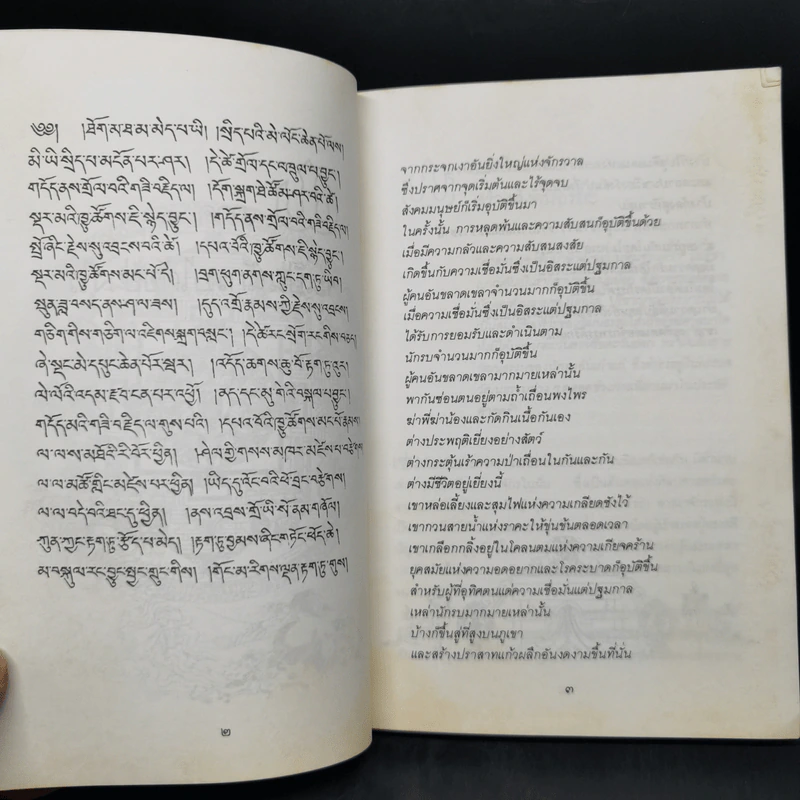 ༄༅། །ཐོག་མ་ཐ་མ་མེད་པ་ཡི། །སྲིད་པའི་མེ་ལོང་ཆེན་པོ་ལས།
མི་ཡི་སྲིད་པ་མངོན་པར་ཤར། །དེ་ཚེ་གྲོལ་དང་འཁྲུལ་པ་བྱུང་།
གདོད་ནས་གྲོལ་བའི་གཟི་བརྗིད་ལ། །དོག་སྐྲག་ཐེ་ཚོམ་ཤར་བའི་ཚེ།
སྡར་མའི་ཁྱུ་ཚོགས་ཇི་སྙེད་བྱུང་། །གདོད་ནས་གྲོལ་བའི་གཟི་བརྗིད་ལ།
སྤྲོ་ཞིང་རྗེས་སུ་འབྲངས་བའི་ཚེ། །དཔའ་བོའི་ཁྱུ་ཚོགས་ཇི་སྙེད་བྱུང་།
སྡར་མའི་ཁྱུ་ཚོགས་མང་པོ་དེ། །བྲག་ཕུག་ནགས་ཀླུང་དག་ཏུ་ཡིབ།
སྤུན་ཟླ་བསད་ནས་ཤ་ལ་ཟས། །དུད་འགྲོ་རྣམས་ཀྱི་རྗེས་སུ་འབྲངས།
གཅིག་གིས་གཅིག་ལ་འཇིགས་སྐྲག་བསླང་། །དེ་ཚེ་རང་སྲོག་རང་གིས་བཅད།
ཞེ་སྡང་མེ་དཔུང་ཆེན་པོར་སྦར། །འདོད་ཆགས་ཆུ་བོ་རྟག་ཏུ་དཀྲུགས།
ལེ་ལོའི་འདམ་རྫབ་ངན་པར་འཕྱོ། །ནད་དང་མུ་གེའི་བསྐལ་པ་བྱུང་།
གདོད་མའི་གཟི་བརྗིད་ལ་གུས་པའི། །དཔའ་བོའི་ཁྱུ་ཚོགས་མང་པོ་རྣམས།
ལ་ལ་ས་མཐོའི་རི་བོར་ཕྱིན། །ཤེལ་གྱི་གསས་མཁར་མཛེས་པ་བརྩིགས།
ལ་ལ་མཚོ་གླིང་མཛེས་པར་ཕྱིན། །ཡིད་དུ་འོང་བའི་ཕོ་བྲང་བརྩིགས།
ལ་ལ་བདེ་བའི་ཐང་དུ་ཕྱིན། །ནས་འབྲས་གྲོ་ཡི་སོ་ནམ་གཞོལ།
ཀུན་ཀྱང་རྟག་ཏུ་རྩོད་པ་མེད། །རྟག་ཏུ་བྱམས་ཞིང་གཏོང་ཕོད་ཆེ།
མ་བསྐུལ་རང་བྱུང་སྤྱང་གྲུང་གིས། །གོང་མ་རིགས་ལྡན་རྟག་ཏུ་གུས།
๒
จากกระจกเงาอันยิ่งใหญ่แห่งจักรวาล
ซึ่งปราศจากจุดเริ่มต้นและไร้จุดจบ
สังคมมนุษย์ก็เริ่มอุบัติขึ้นมา
ในครั้งนั้น การหลุดพ้นและความสับสนก็อุบัติขึ้นด้วย
เมื่อมีความกลัวและความสับสนสงสัย
เกิดขึ้นกับความเชื่อมั่นซึ่งเป็นอิสระแต่ปฐมกาล
ผู้คนอันขลาดเขลาจำนวนมากก็อุบัติขึ้น
เมื่อความเชื่อมั่นซึ่งเป็นอิสระแต่ปฐมกาล
ได้รับการยอมรับและดำเนินตาม
นักรบจำนวนมากก็อุบัติขึ้น
ผู้คนอันขลาดเขลามากมายเหล่านั้น
พากันซ่อนตนอยู่ตามถ้ำเถื่อนพงไพร
ฆ่าพี่ฆ่าน้องและกัดกินเนื้อกันเอง
ต่างประพฤติเยี่ยงอย่างสัตว์
ต่างกระตุ้นเร้าความป่าเถื่อนในกันและกัน
ต่างมีชีวิตอยู่เยี่ยงนี้
เขาหล่อเลี้ยงและสุมไฟแห่งความเกลียดชังไว้
เขากวนสายน้ำแห่งราคะให้ขุ่นข้นตลอดเวลา
เขาเกลือกกลิ้งอยู่ในโคลนตมแห่งความเกียจคร้าน
ยุคสมัยแห่งความอดอยากและโรคระบาดก็อุบัติขึ้น
สำหรับผู้ที่อุทิศตนแด่ความเชื่อมั่นแต่ปฐมกาล
เหล่านักรบมากมายเหล่านั้น
บ้างก็ขึ้นสู่ที่สูงบนภูเขา
และสร้างปราสาทแก้วผลึกอันงดงามขึ้นที่นั่น
๓